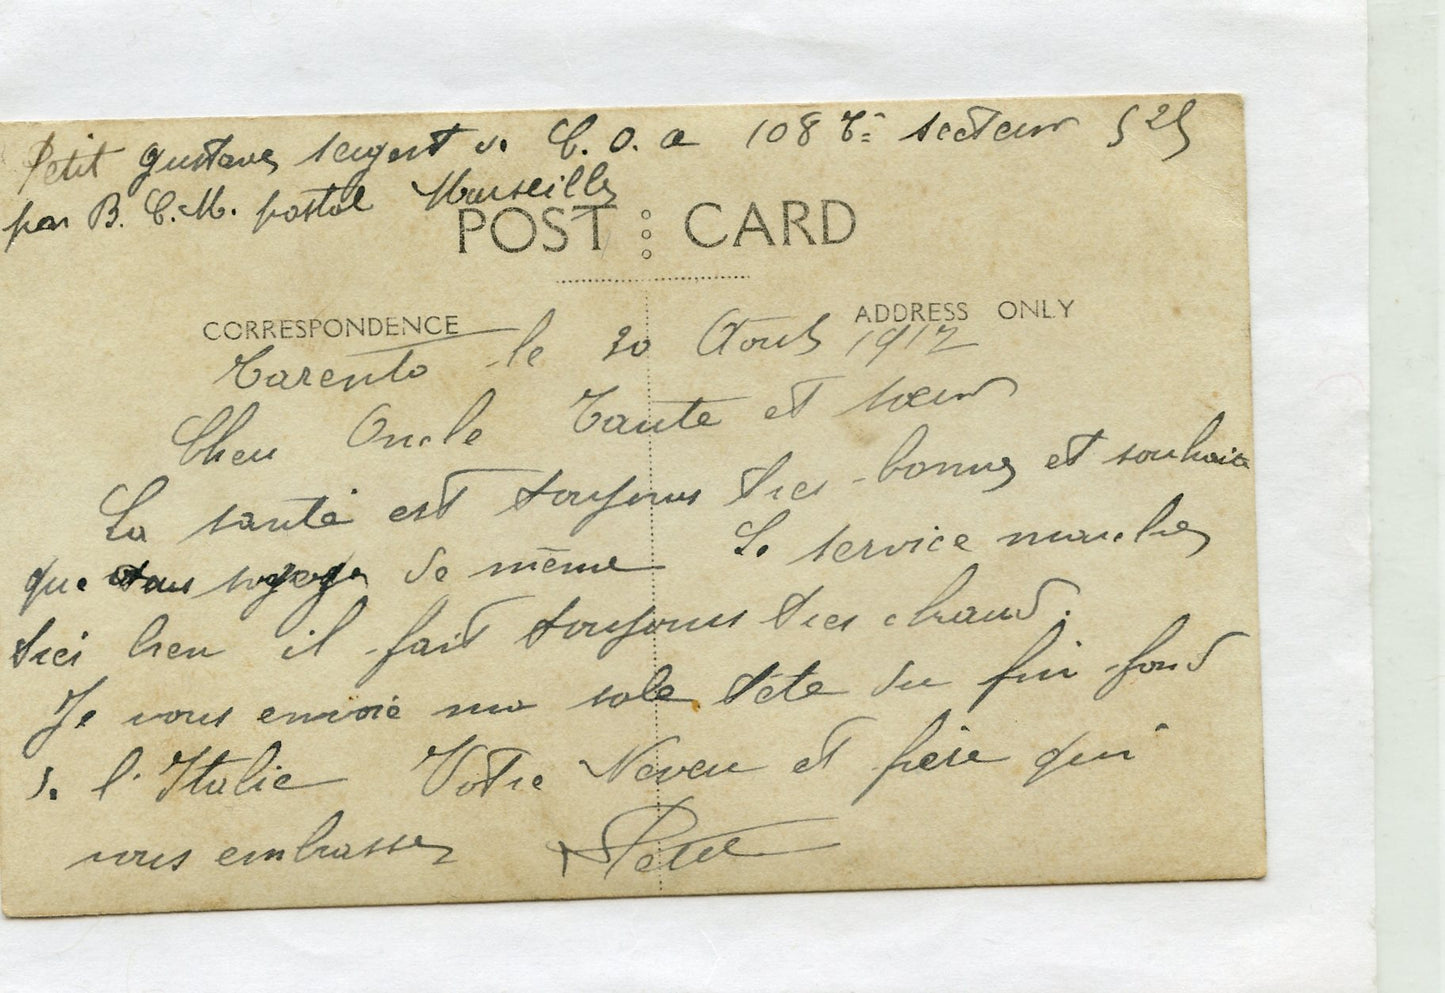 Petit Gustave sergent d. C. O. A 108 Tie secteur 525
par B. C. M. postal Marseille
POST CARD
CORRESPONDENCE
ADDRESS ONLY
Tarento le 20 Aout 1917
Cheu Oncle Tante et sœur
La santé est toujours tres bonne et souhaite
que vous soyez de même Le service marche
tres bien il fait toujours tres chaud.
Je vous envoie ma sale tête du fin fond
d. l'Italie Votre Neveu et frère qui
vous embrasse Petit